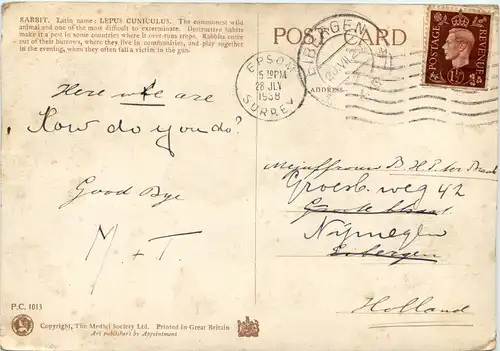 RABBIT. Latin name: LEPUS CUNICULUS. The commonest wild
animal and one of the most difficult to exterminate. Destructive habits
make it a pest in some countries where it over-runs crops. Rabbits come
out of their burrows, where they live in communities, and play together
in the evening, when they often fall a victim in the gun.
Here we are
How do you do?
Good Bye
M + T.
P.C. 1013
Copyright, The Medici Society Ltd. Printed in Great Britain
Art publishers by Appointment
POST CARD
ADDRESS
EPSOM
5 PM
28 JLY
1938
SURREY
EIBERGEN
POSTAGE
REVENUE
1½
Mejuffrouw B H P ter Braak
Groesb. weg 42
Nijmegen
Eibergen
Holland